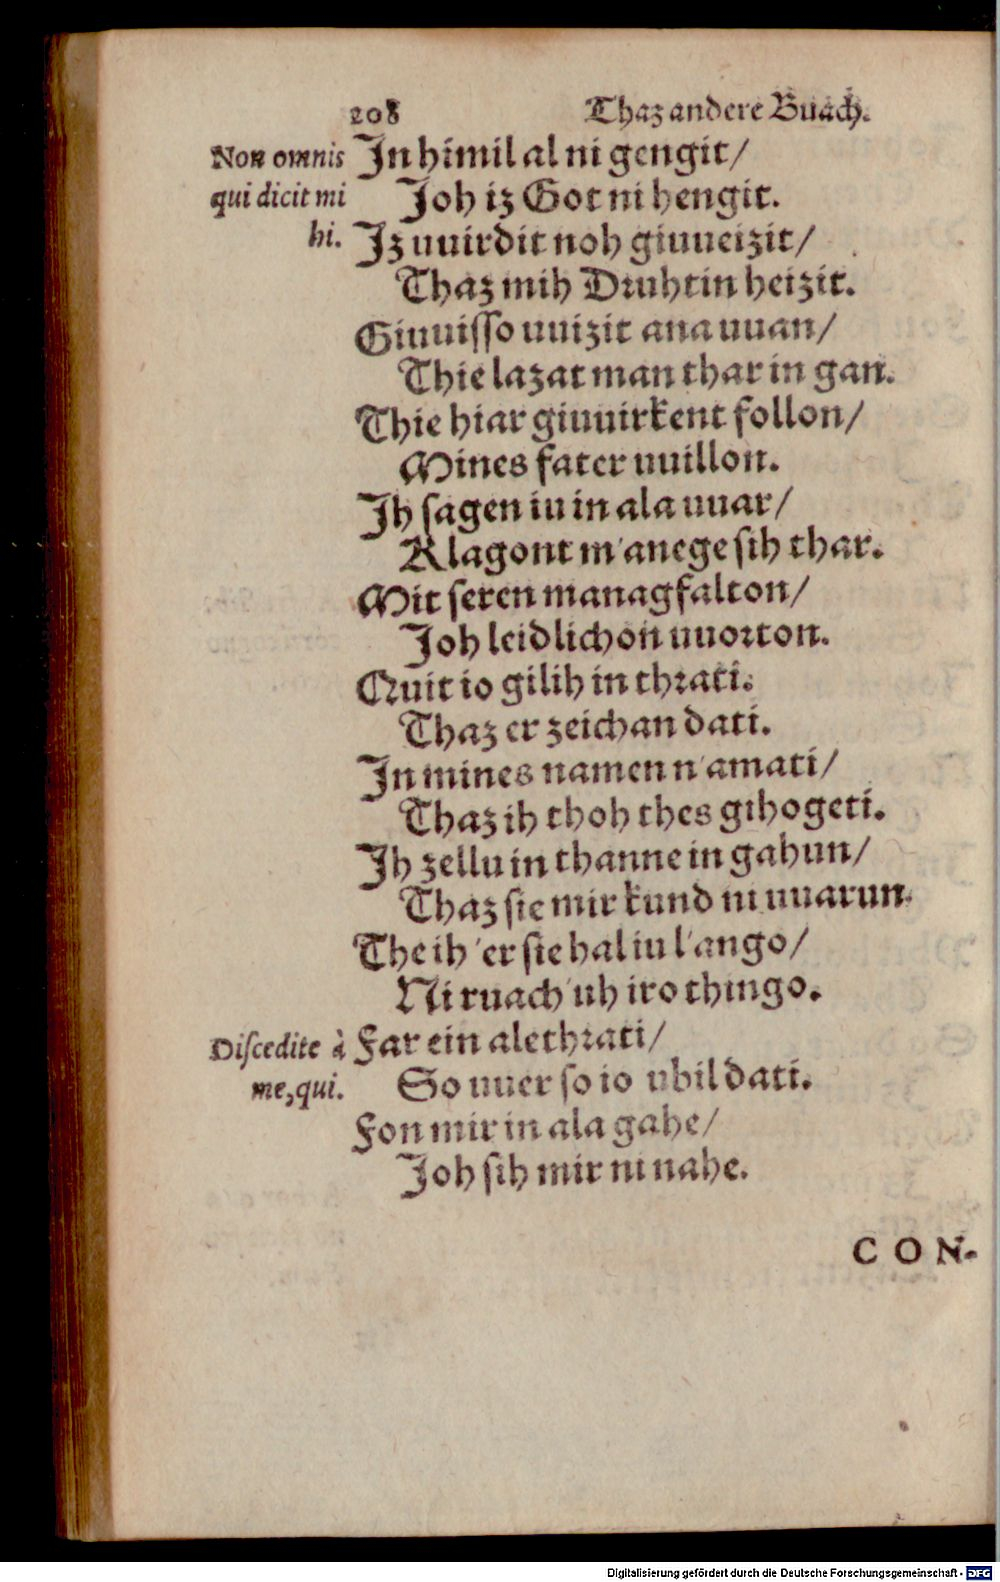 208 Thaz andere Buach.
Non omnis
qui dicit mi
hi.
In himil al ni gengit/
Joh iz Got ni hengit.
Iz uuirdit noh giuueizit/
Thaz mih Druhtin heizit.
Giuuisso uuizit ana uuan/
Thie lazat man thar in gan.
Thie hiar giuuirkent follon/
Mines fater uuillon.
Ih sagen iu in ala uuar/
Klagont m'anege sih thar.
Mit seren managfalton/
Joh leidlichon uuorton.
Quit io gilih in thrati.
Thaz er zeichan dati.
In mines namen n'amati/
Thaz ih thoh thes gihogeti.
Ih zellu in thanne in gahun/
Thaz sie mir kund ni uuarun.
The ih 'er sie hal iu l'ango/
Ni ruach 'uh iro thingo.
Discedite à
me, qui.
Far ein alethrati/
So uuer so io vbil dati.
Fon mir in ala gahe/
Joh sih mir ni nahe.
CON-
Digitalisierung gefördert durch die Deutsche Forschungsgemeinschaft - DFG